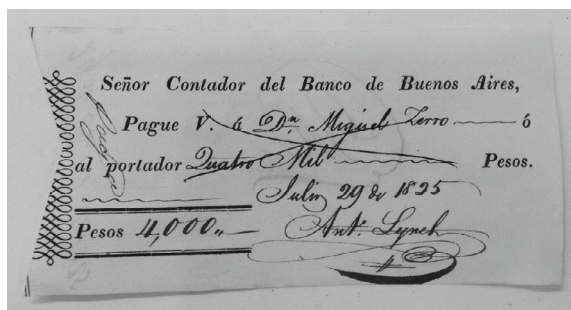 Señor Contador del Banco de Buenos Aires,
Pague V. á Dn. Miguel Zerro ó
al portador Quatro Mil Pesos.
Julio 29 de 1825
Pesos 4,000,,
Antº. Lynch